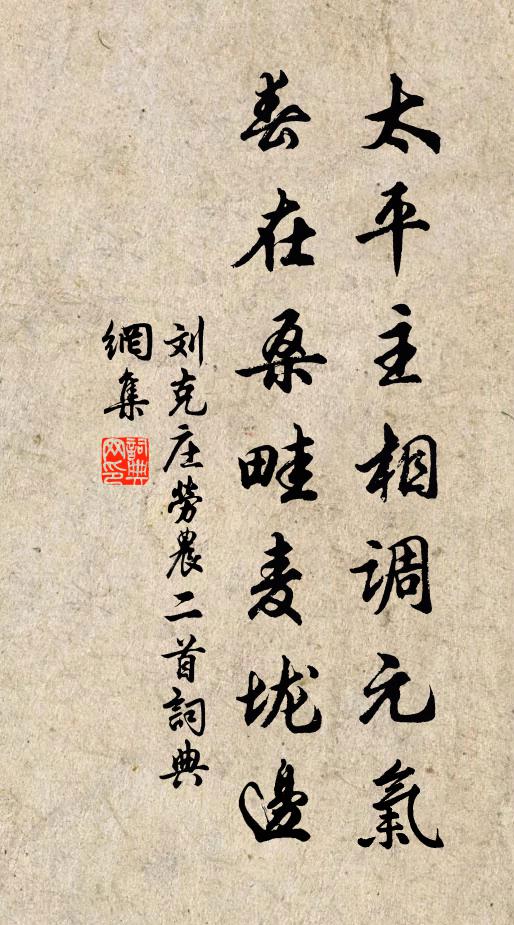 太平主相调元氣
春在桑畦麦垅邊
刘克庄勞農二首詞典
網集
詞典網印